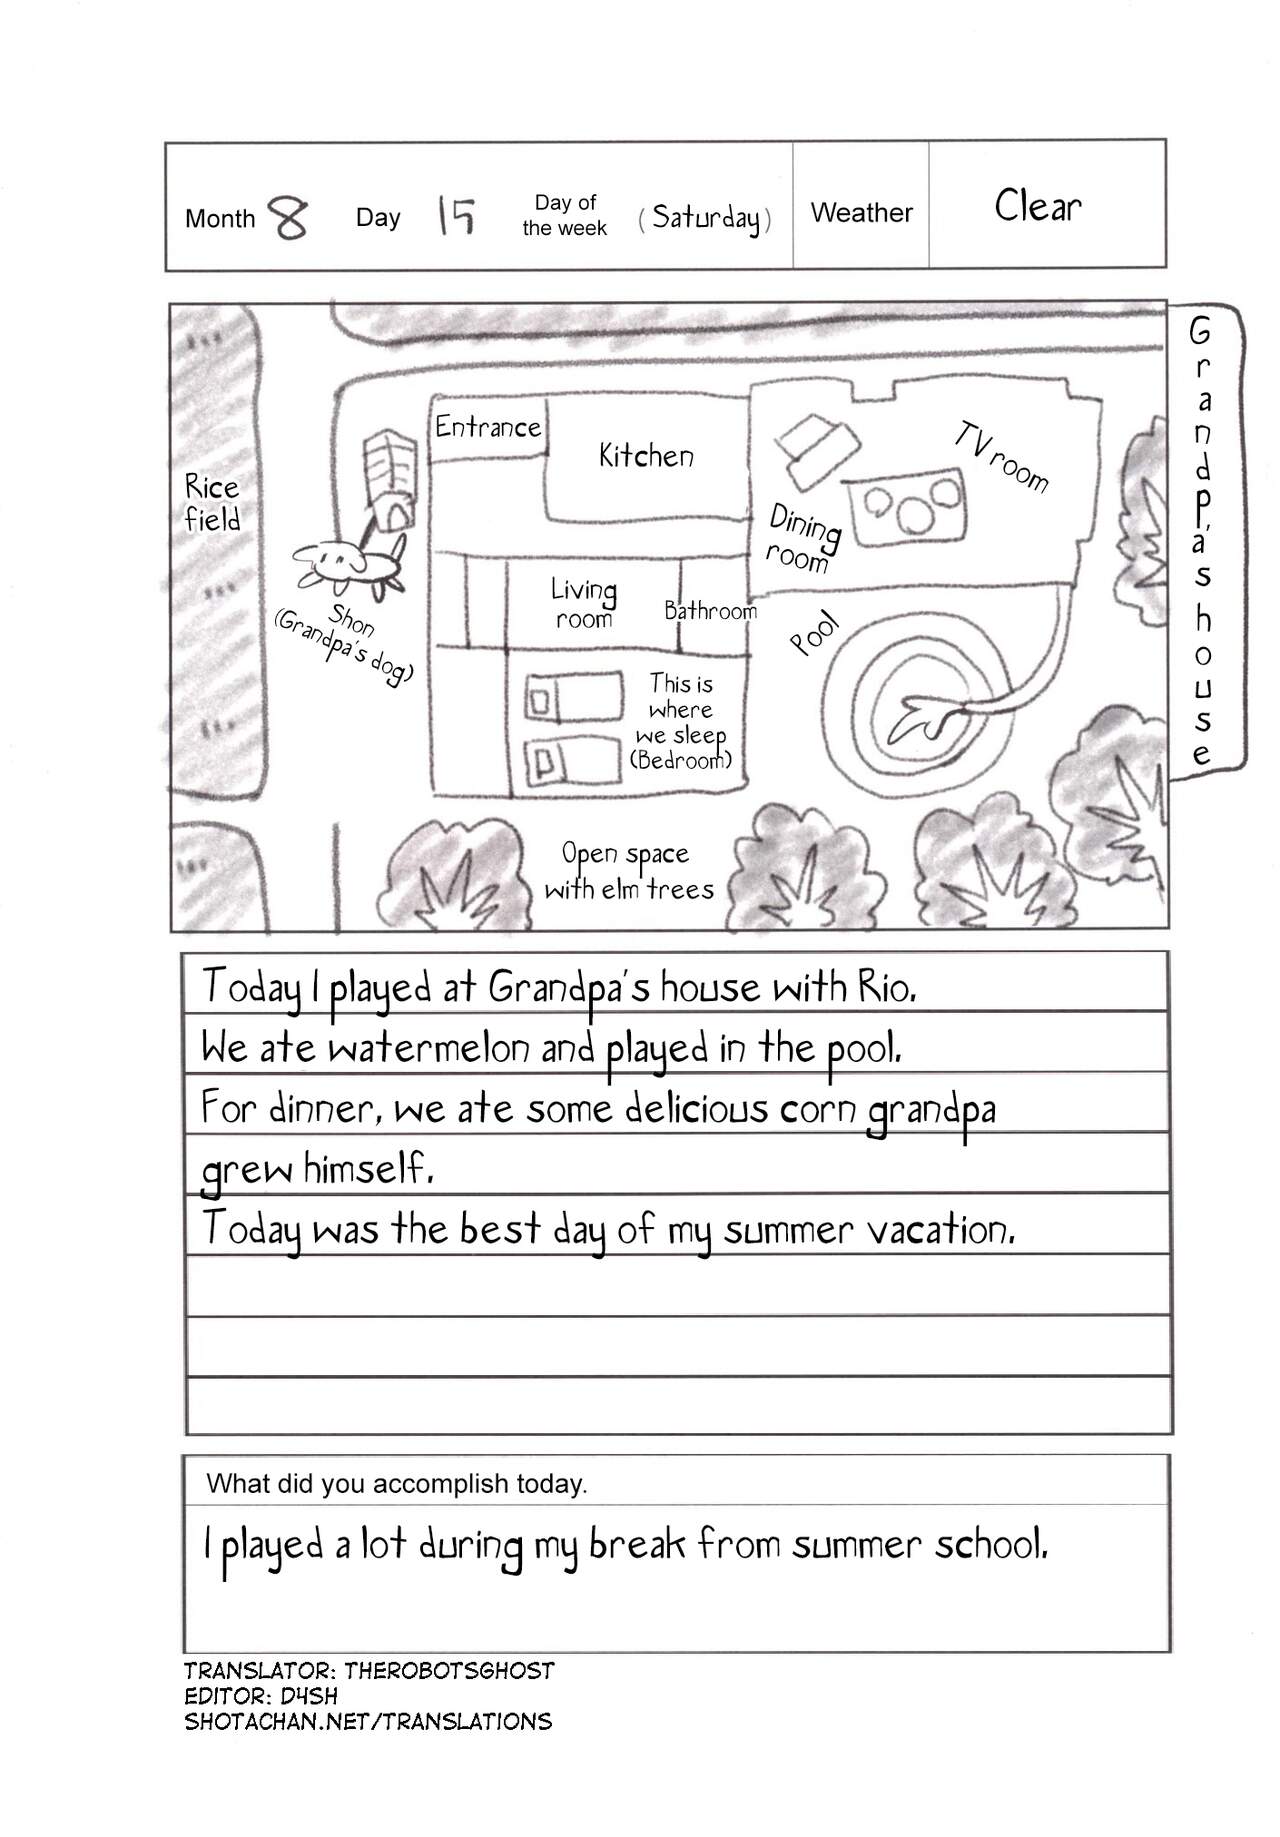 Month 8 Day 15 Day of the week (Saturday) Weather Clear
Grandpa's house
Entrance
Kitchen
TV room
Rice
field
Dining
room
Shon
(Grandpa's dog)
Living
room
Bathroom
Pool
This is
where
we sleep
(Bedroom)
Open space
with elm trees
Today I played at Grandpa's house with Rio.
We ate watermelon and played in the pool.
For dinner, we ate some delicious corn grandpa
grew himself.
Today was the best day of my summer vacation.
What did you accomplish today.
I played a lot during my break from summer school.
TRANSLATOR: THEROBOTSGHOST
EDITOR: D4SH
SHOTACHAN.NET/TRANSLATIONS